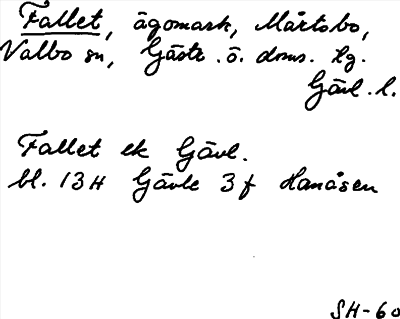 Fallet, ägomark, Mårtsbo,
Valbo sn, Gästr. ö. doms. tg.
Gävl. l.
Fallet ek Gävl.
bl. 13H Gävle 3f Hanåsen
SH-60